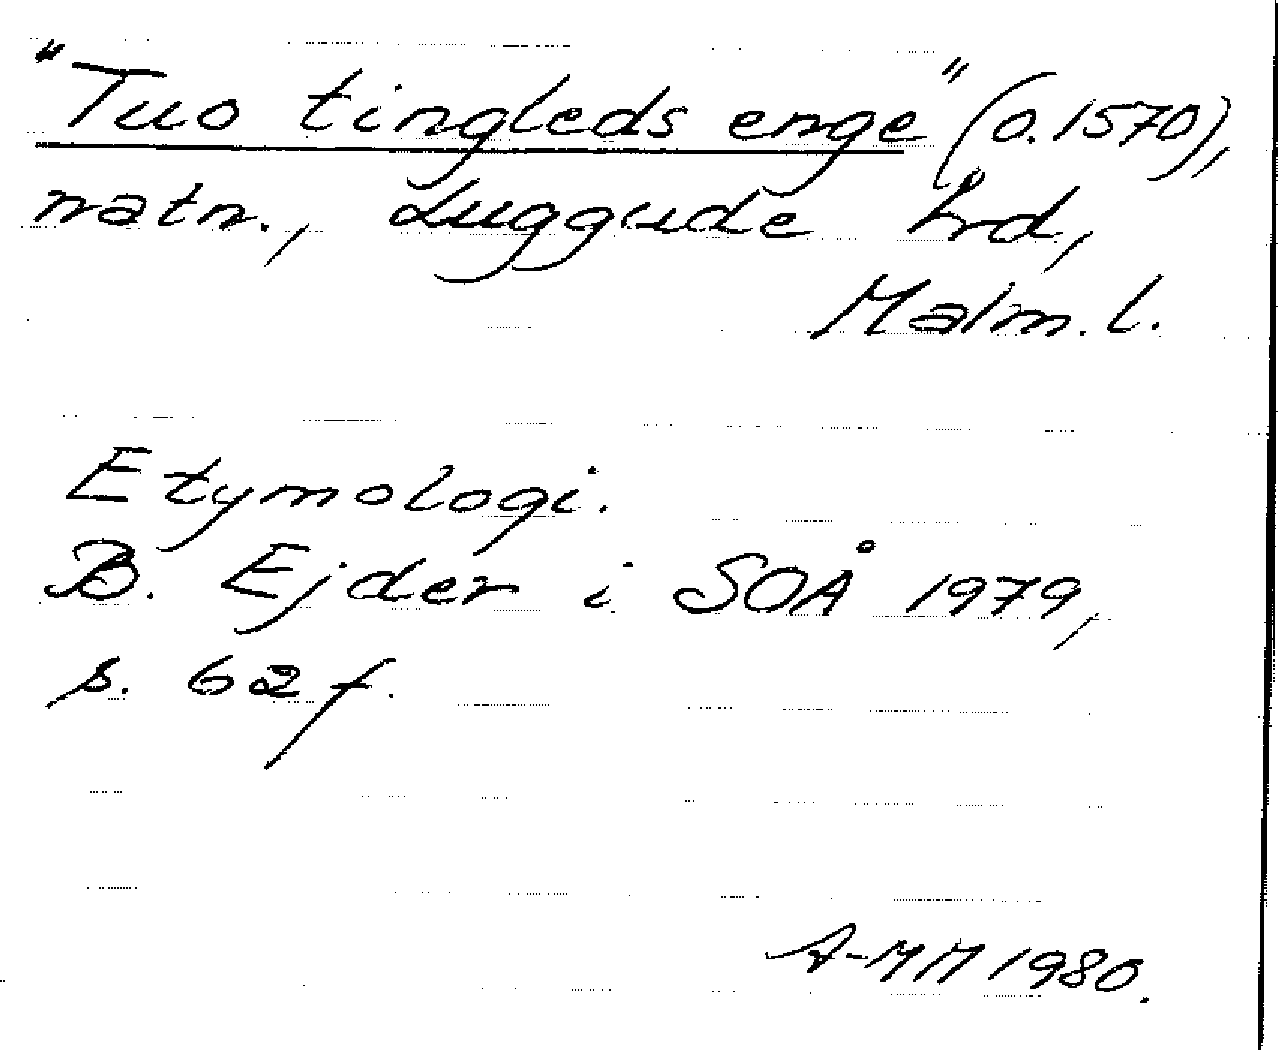 "Tuo tingleds enge" (o. 1570),
natn., Luggude hd,
Malm. l.
Etymologi.
B. Ejder i SOÅ 1979,
s. 62 f.
A-MM 1980.